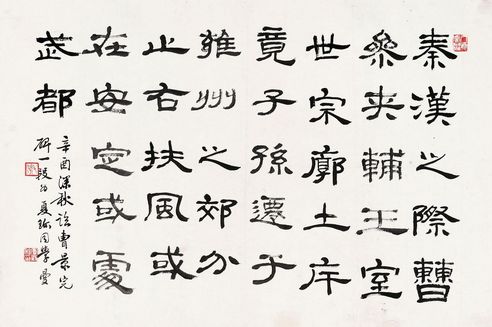 秦漢之際曹
參夾輔王室
世宗廓土斥
竟子孫遷于
雍州之郊分
止右扶風或
在安定或處
武都
辛酉深秋臨曹景完
碑一段夏珍同學